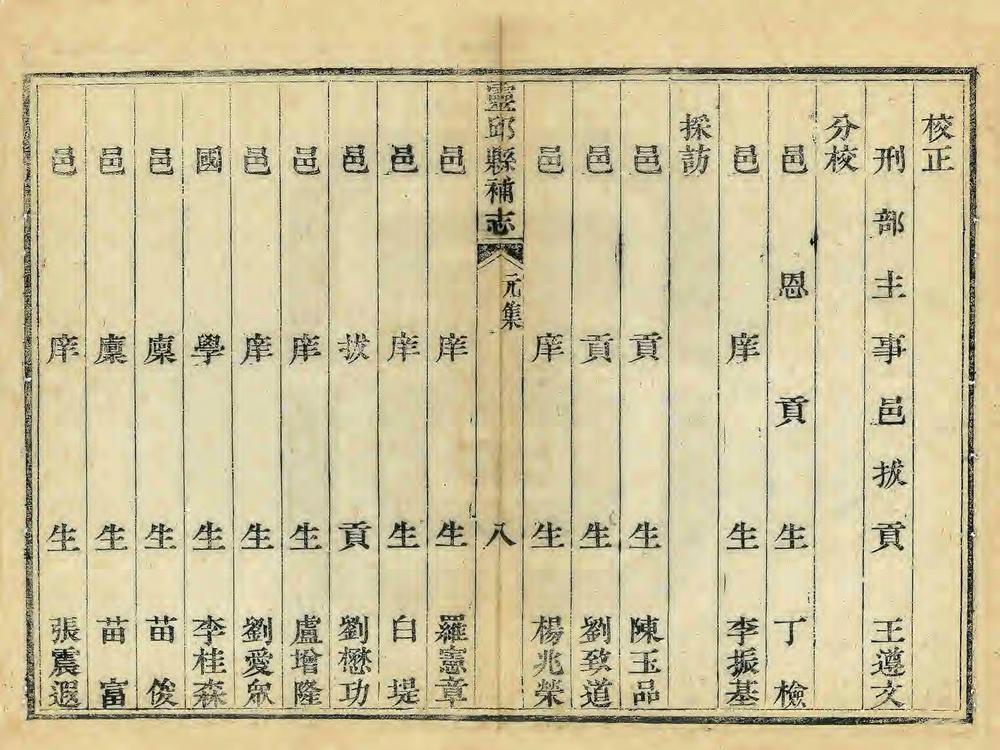 校正
刑部主事邑拔貢王遵文
分校
邑恩貢生丁檢
邑庠生李振基
採訪
邑貢生陳玉品
邑貢生劉致道
邑庠生楊兆榮
靈邱縣補志 元集 八
邑庠生羅憲章
邑庠生白堤
邑拔貢劉懋功
邑庠生盧增隆
邑庠生劉愛眾
國學生李桂森
邑廩生苗俊
邑廩生苗富
邑庠生張震遐